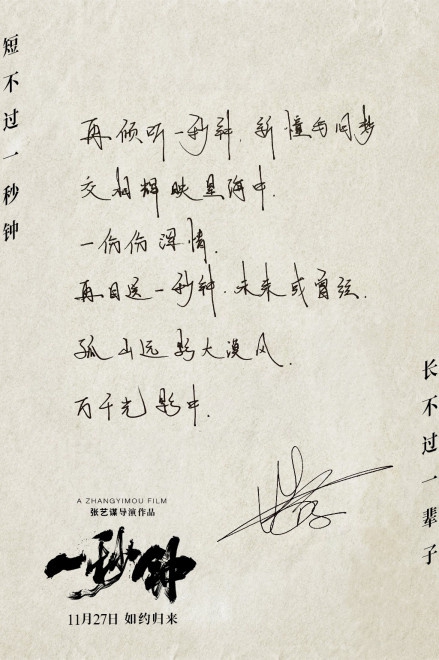 短不过一秒钟
再倾听一秒钟.新憧与旧梦
交相辉映星海中.
一份份深情.
再目送一秒钟.未来或曾经.
孤山远影大漠风.
万千光影中.
长不过一辈子
A ZHANGYIMOU FILM
张艺谋导演作品
一秒钟
11月27日 如约归来